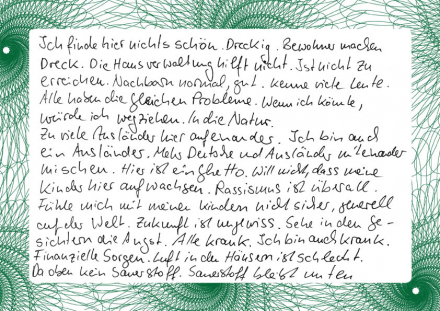 Ich finde hier nichts schön. Dreckig. Bewohner machen
Dreck. Die Hausverwaltung hilft nicht. Ist nicht zu
erreichen. Nachbarn normal, gut. Kenne viele Leute.
Alle haben die gleichen Probleme. Wenn ich könnte,
würde ich wegziehen. In die Natur.
Zu viele Ausländer hier aufeinander. Ich bin auch
ein Ausländer. Mehr Deutsche und Ausländer miteinander
mischen. Hier ist ein Ghetto. Will nicht, dass meine
Kinder hier aufwachsen. Rassismus ist überall.
Fühle mich mit meinen Kindern nicht sicher, generell
auf der Welt. Zukunft ist ungewiss. Sehe in den Ge-
sichtern die Angst. Alle krank. Ich bin auch krank.
Finanzielle Sorgen. Luft in den Häusern ist schlecht.
Da oben kein Sauerstoff. Sauerstoff bleibt unten